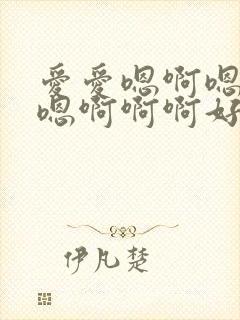 爱爱嗯啊嗯
嗯啊啊啊好
伊凡楚